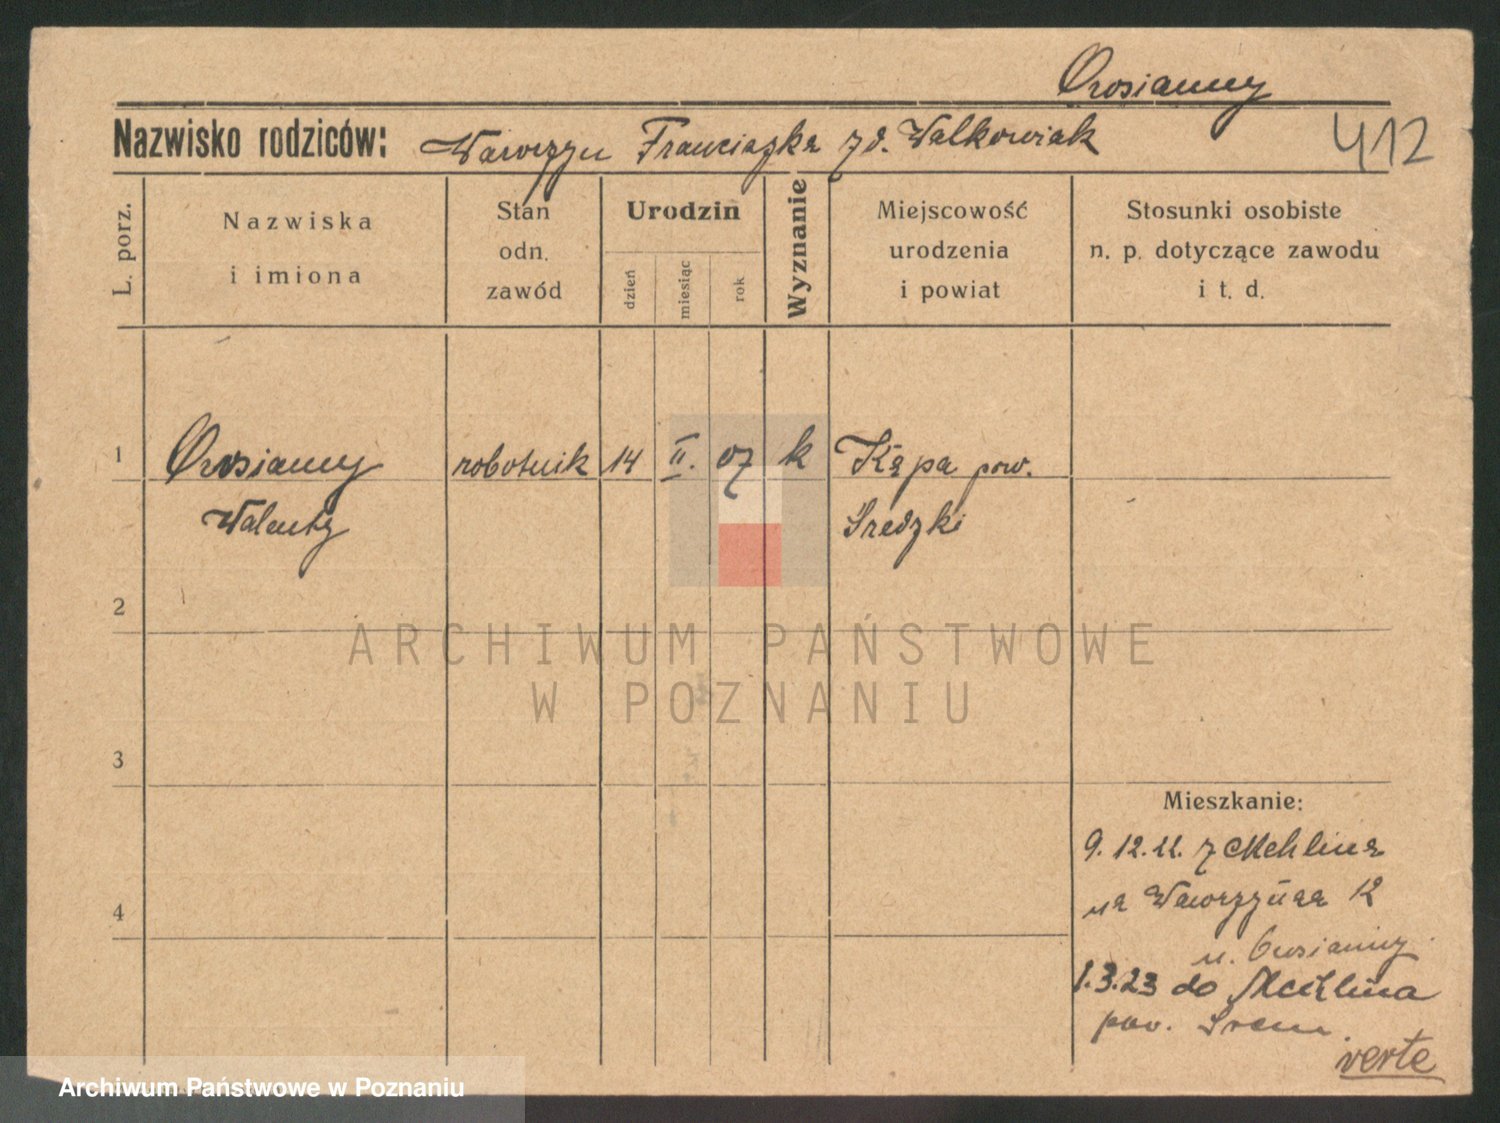 Owsianny
Nazwisko rodziców: Wawrzyn Franciszka zd. Walkowiak
412
L. porz.
Nazwiska
i imiona
Stan
odn.
zawód
Urodzin
dzień
miesiąc
rok
Wyznanie
Miejscowość
urodzenia
i powiat
Stosunki osobiste
n. p. dotyczące zawodu
i t. d.
1 Owsianny robotnik 14 II. 07 k Kępa pow.
Walenty Sredzki
2
3
4
Mieszkanie:
9. 12. 22. z Mchlina
na Wawrzyńca 12
u. Owsianny
1.3.23 do Mchlina
pow. Srem.
verte
ARCHIWUM PAŃSTWOWE
W POZNANIU
Archiwum Państwowe w Poznaniu